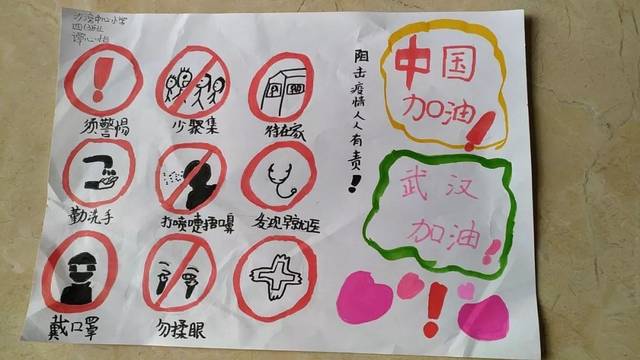 中心小学
须警惕
少聚集
待在家
勤洗手
打喷嚏捂嘴
发现早就医
戴口罩
勿揉眼
阻击疫情人人有责!
中国
加油!
武汉
加油!